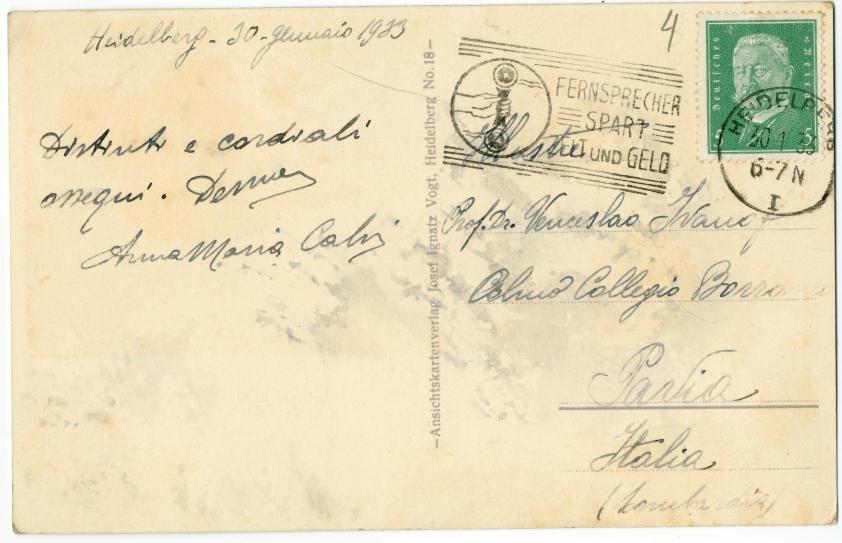 Heidelberg - 30 - gennaio 1933
Distinti e cordiali
ossequi.
Anna Maria Calvi
-Ansichtskartenverlag Josef Ignatz Vogt, Heidelberg No. 18-
4
FERNSPRECHER
SPART
ZEIT UND GELD
Deutsches Reich
5
HEIDELBERG
30.1.33
6-7 N
I
Illustre
Prof. Dr. Venceslao Ivanof
Almo Collegio Borromeo
Pavia
Italia
(Lombardia)